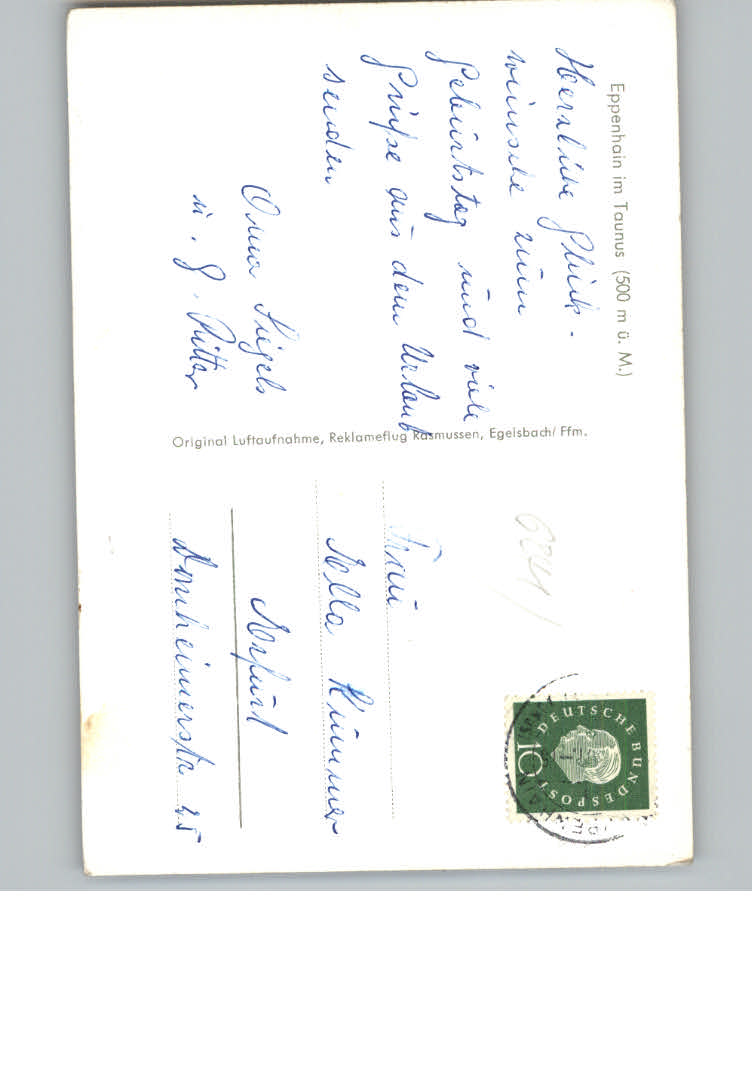 Eppenhain im Taunus (500 m ü. M.)
Herzliche Glück-
wünsche zum
Geburtstag und viele
Grüße aus dem Urlaub
senden
Oma
u. G. Ritter
Original Luftaufnahme, Reklameflug Rasmussen, Egelsbach/ Ffm.
Frau
Kümmer
Erfurt
45
DEUTSCHE BUNDESPOST
10